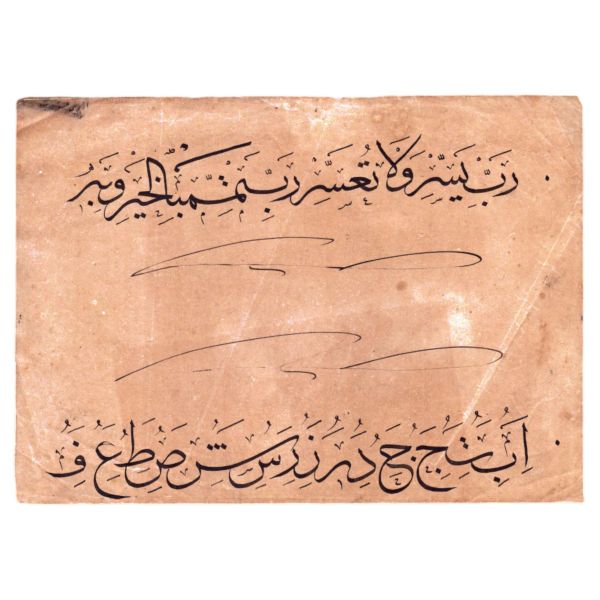 رَبِّ يَسِّرْ وَلَا تُعَسِّرْ رَبِّ تَمِّمْ بِالْخَيْرِ وَبِهِ
ا ب ت ج ح د ر ز س ش ص ط ع ف